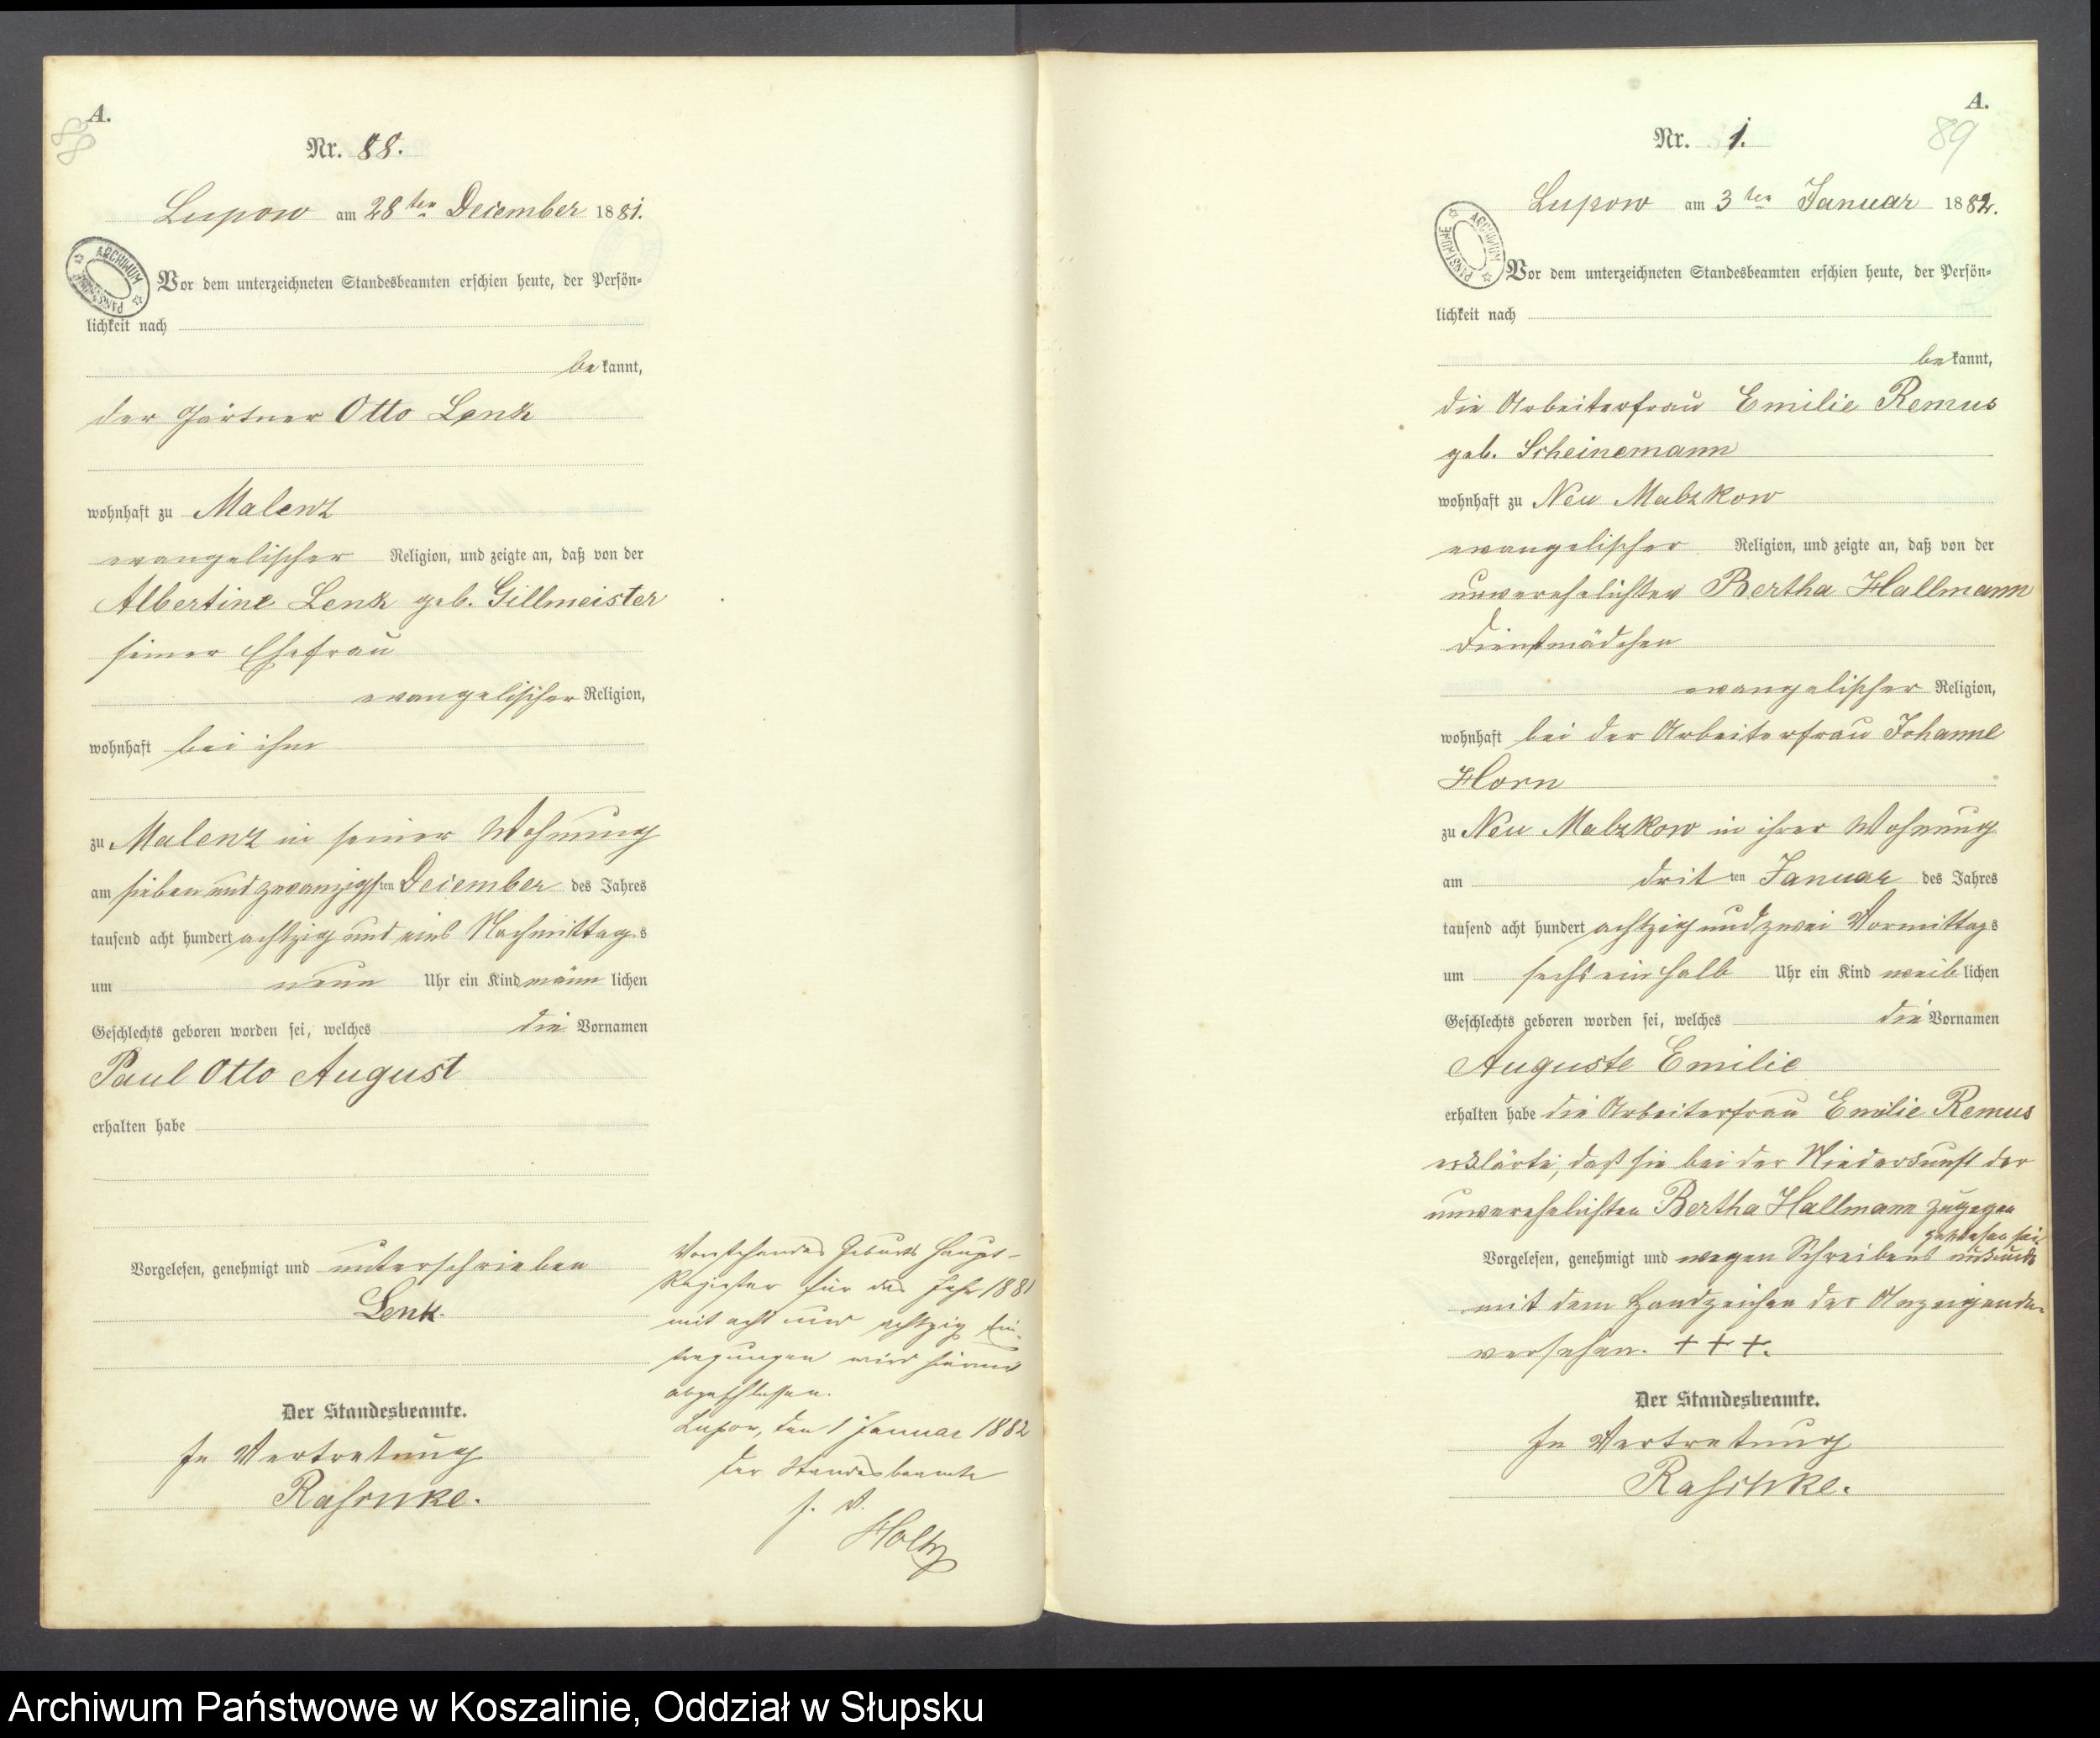 A.
88
Nr. 88.
Lupow am 28ten December 1881.
ARCHIWUM PAŃSTWOWE
Vor dem unterzeichneten Standesbeamten erschien heute, der Persön-
lichkeit nach
be kannt,
der Gärtner Otto Lenk
wohnhaft zu Malenz
evangelischer Religion, und zeigte an, daß von der
Albertine Lenk geb. Gillmeister
seiner Ehefrau
evangelischer Religion,
wohnhaft bei ihm
zu Malenz in seiner Wohnung
am sieben und zwanzigsten December des Jahres
tausend acht hundert achtzig und eins Nachmittags
um neun Uhr ein Kind männ lichen
Geschlechts geboren worden sei, welches die Vornamen
Paul Otto August
erhalten habe
Vorgelesen, genehmigt und unterschrieben
Lenk.
Der Standesbeamte.
In Vertretung
Raschke.
Vorstehendes Geburts Haupt-
Register für das Jahr 1881
mit acht und achtzig Ein-
tragungen wird hiermit
abgeschlossen.
Lupow, den 1 Januar 1882
Der Standesbeamte
J. V.
Holtz
A.
89
Nr. 1.
Lupow am 3ten Januar 1882.
ARCHIWUM PAŃSTWOWE
Vor dem unterzeichneten Standesbeamten erschien heute, der Persön-
lichkeit nach
be kannt,
die Arbeiterfrau Emilie Remus
geb. Scheinemann
wohnhaft zu Neu Malzkow
evangelischer Religion, und zeigte an, daß von der
unverehelichten Bertha Hallmann
Dienstmädchen
evangelischer Religion,
wohnhaft bei der Arbeiterfrau Johanne
Horn
zu Neu Malzkow in ihrer Wohnung
am dritten Januar des Jahres
tausend acht hundert achtzig und zwei Vormittags
um sechs ein halb Uhr ein Kind weib lichen
Geschlechts geboren worden sei, welches die Vornamen
Auguste Emilie
erhalten habe die Arbeiterfrau Emilie Remus
erklärte, daß sie bei der Niederkunft der
unverehelichten Bertha Hallmann zugegen
gewesen sei.
Vorgelesen, genehmigt und wegen Schreibens unkunde
mit dem Handzeichen der Anzeigenden
versehen. + + +.
Der Standesbeamte.
In Vertretung
Raschke.
Archiwum Państwowe w Koszalinie, Oddział w Słupsku